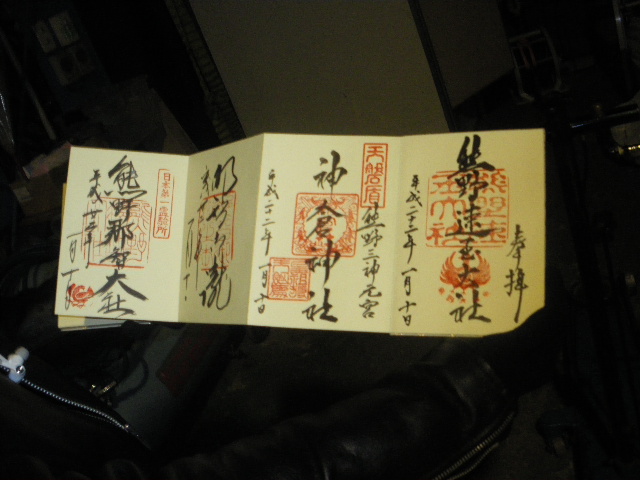 奉拝
熊野速玉大社
平成二十二年一月十日
天磐盾
熊野三神元宮
神倉神社
平成二十二年一月十日
那智の瀧
日本第一霊験所
熊野那智大社
一月十日